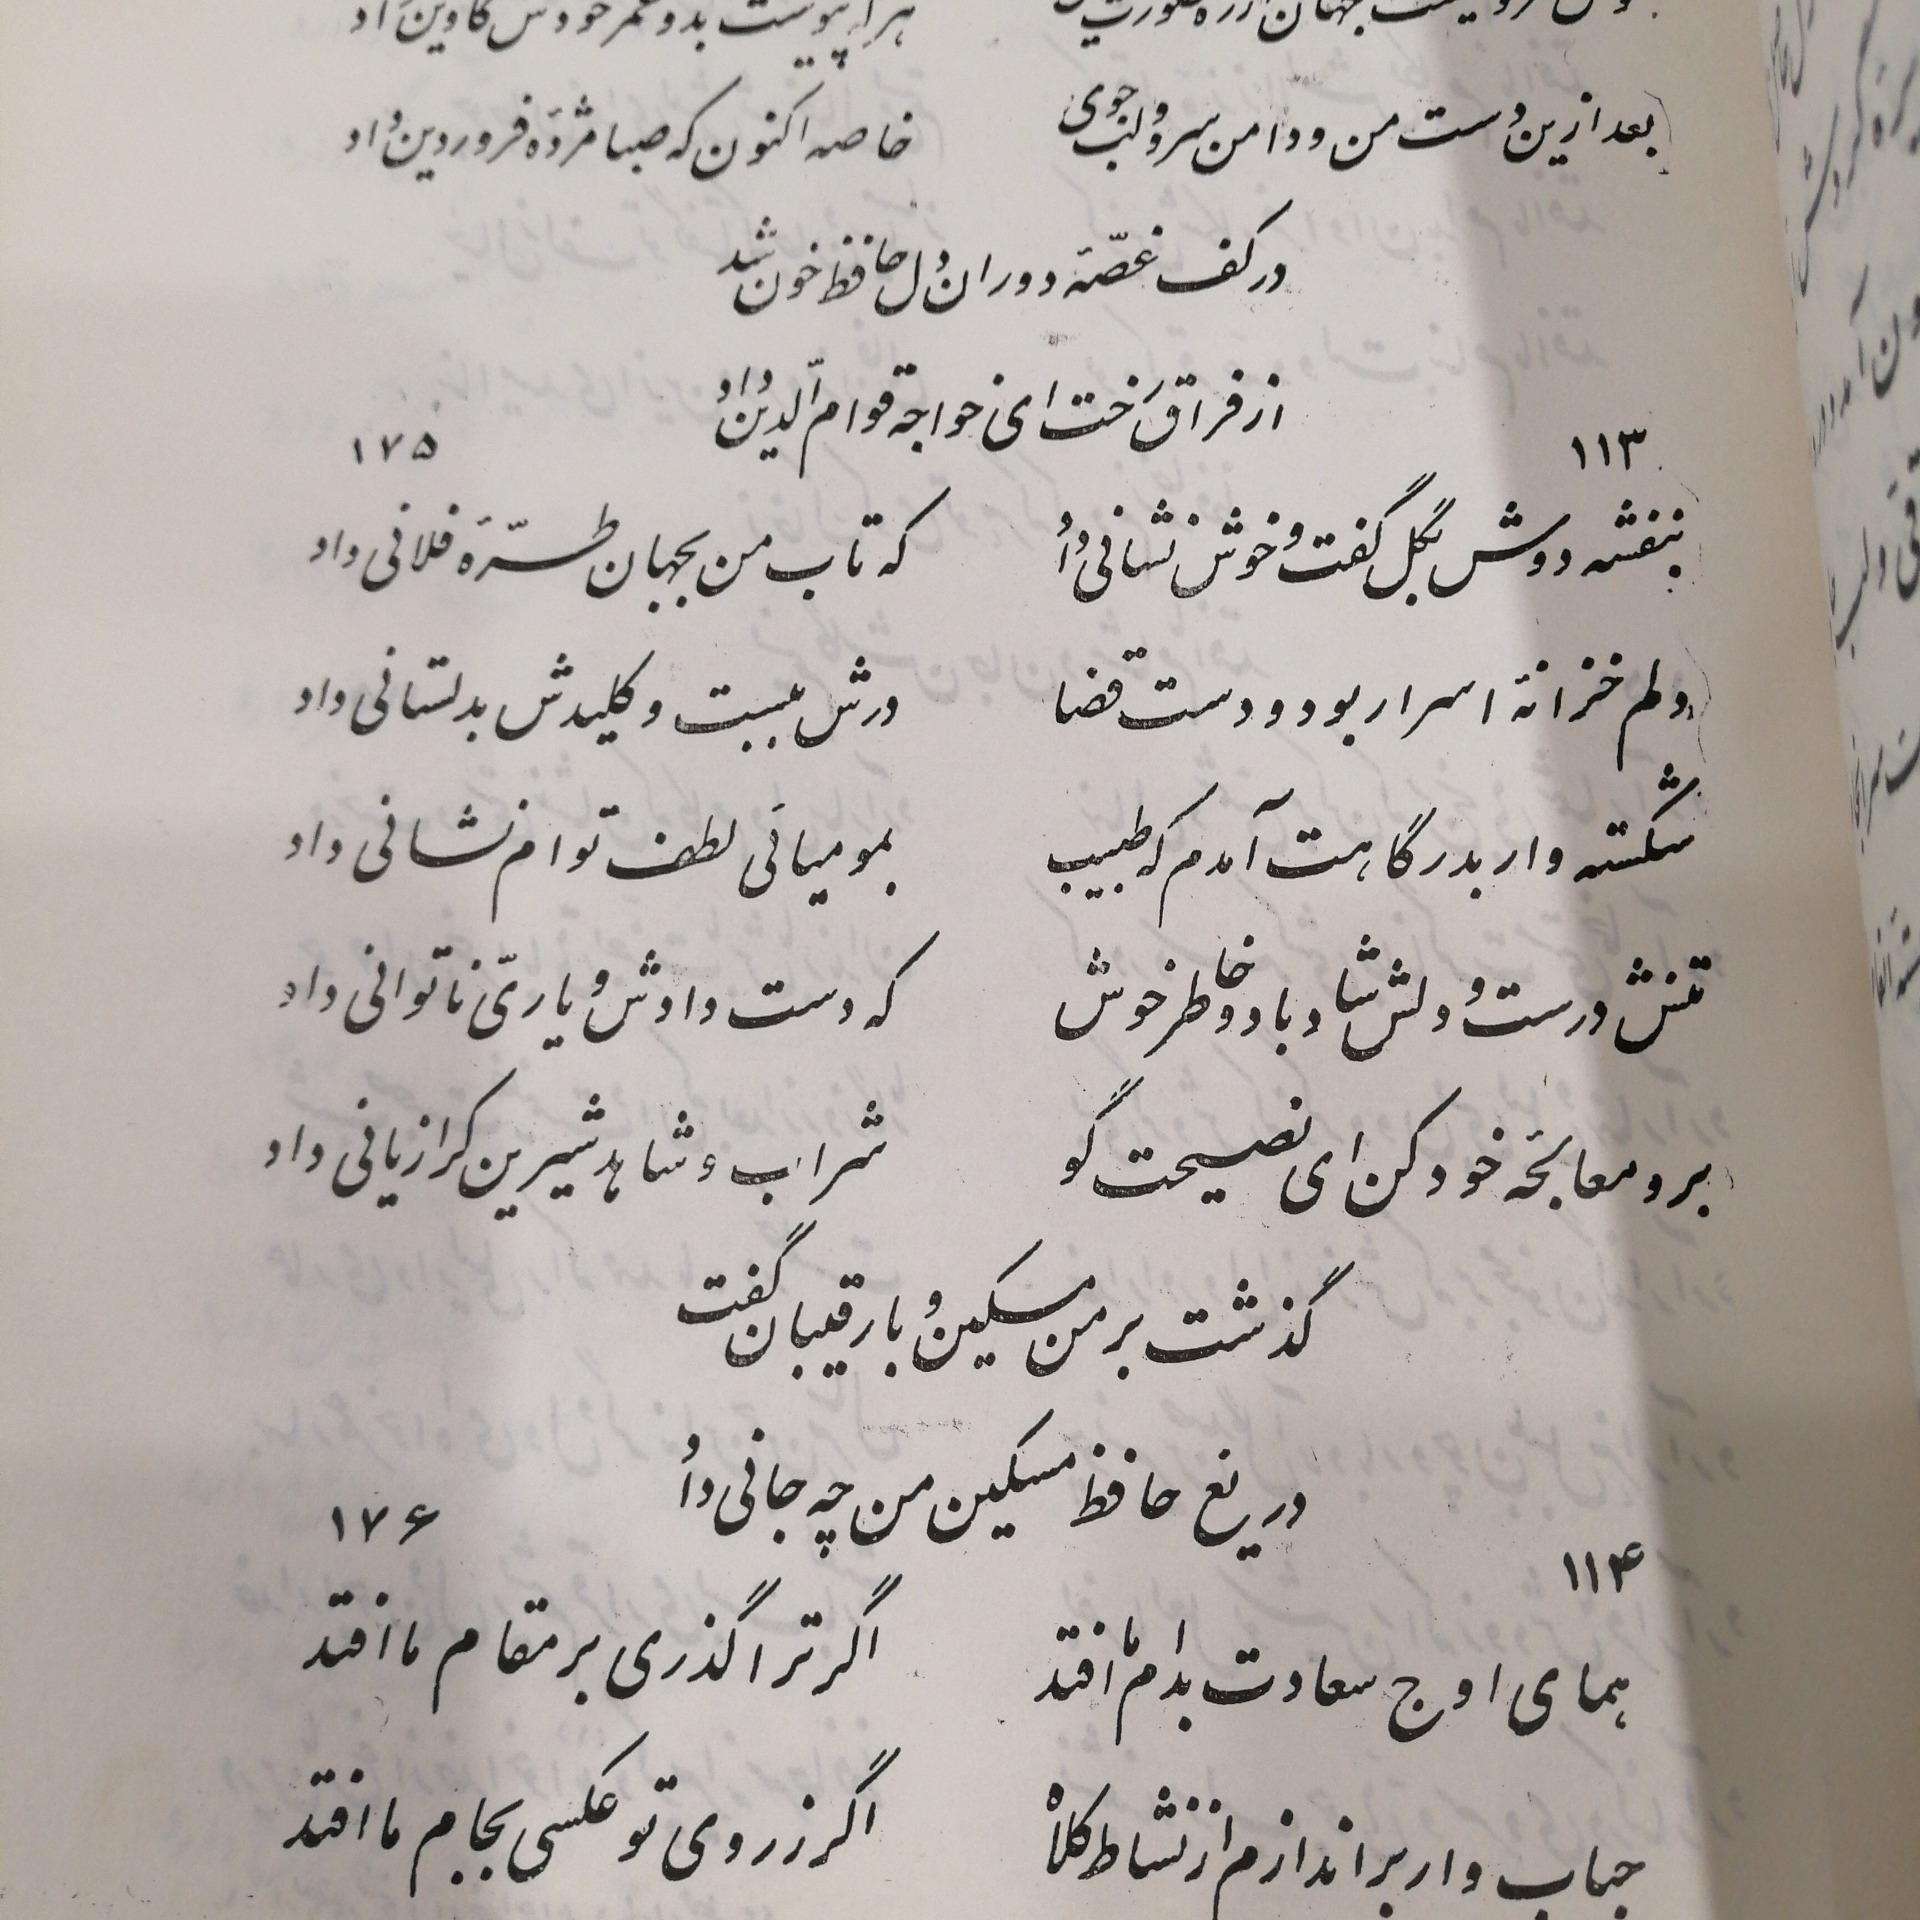 هر که پیوست بدو عمر خودش کاوین داد
بعد ازین دست من و دامن سرو و لب جوی
خاصه اکنون که صبا مژدهٔ فروردین داد
در کف غصّهٔ دوران دل حافظ خون شد
از فراق رخت ای خواجه قوام الدّین داد
۱۱۳
۱۷۵
بنفشه دوش بگل گفت و خوش نشانی داد
که تاب من بجهان طرّهٔ فلانی داد
دلم خزانهٔ اسرار بود و دست قضا
درش ببست و کلیدش بدلستانی داد
شکسته وار بدرگاهت آمدم که طبیب
بمومیائی لطف توام نشانی داد
تنش درست و دلش شاد باد و خاطر خوش
که دست دادش و یاریّ ناتوانی داد
برو معالجهٔ خود کن ای نصیحت گو
شراب و شاهد شیرین کرا زیانی داد
گذشت بر من مسکین و با رقیبان گفت
دریغ حافظ مسکین من چه جانی داد
۱۱۴
۱۷۶
همای اوج سعادت بدام ما افتد
اگر ترا گذری بر مقام ما افتد
حباب وار براندازم از نشاط کلاه
اگر ز روی تو عکسی بجام ما افتد